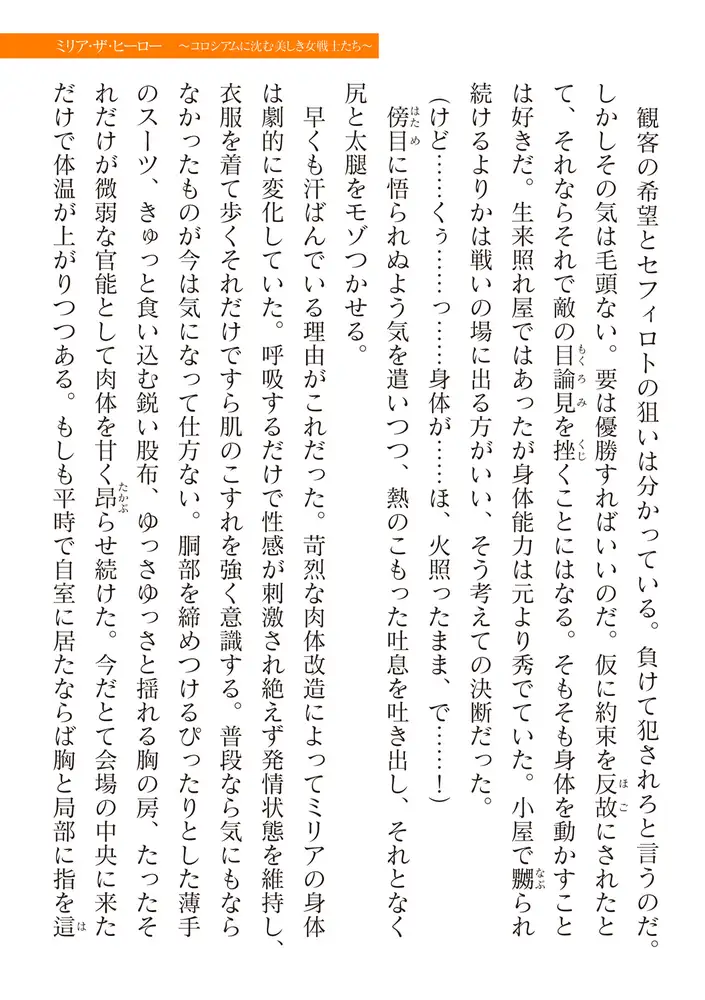 ミリア・ザ・ヒーロー　～コロシアムに沈む美しき女戦士たち～
観客の希望とセフィロトの狙いは分かっている。負けて犯されろと言うのだ。
しかしその気は毛頭ない。要は優勝すればいいのだ。仮に約束を反故にされたと
て、それならそれで敵の目論見を挫くことにはなる。そもそも身体を動かすこと
は好きだ。生来照れ屋ではあったが身体能力は元より秀でていた。小屋で嬲られ
続けるよりかは戦いの場に出る方がいい、そう考えての決断だった。
（けど……くぅ……っ……身体が……ほ、火照ったまま、で……！）
傍目に悟られぬよう気を遣いつつ、熱のこもった吐息を吐き出し、それとなく
尻と太腿をモゾつかせる。
早くも汗ばんでいる理由がこれだった。苛烈な肉体改造によってミリアの身体
は劇的に変化していた。呼吸するだけで性感が刺激され絶えず発情状態を維持し、
衣服を着て歩くそれだけですら肌のこすれを強く意識する。普段なら気にもなら
なかったものが今は気になって仕方ない。胴部を締めつけるぴったりとした薄手
のスーツ、きゅっと食い込む鋭い股布、ゆっさゆっさと揺れる胸の房、たったそ
れだけが微弱な官能として肉体を甘く昂らせ続けた。今だとて会場の中央に来た
だけで体温が上がりつつある。もしも平時で自室に居たならば胸と局部に指を這